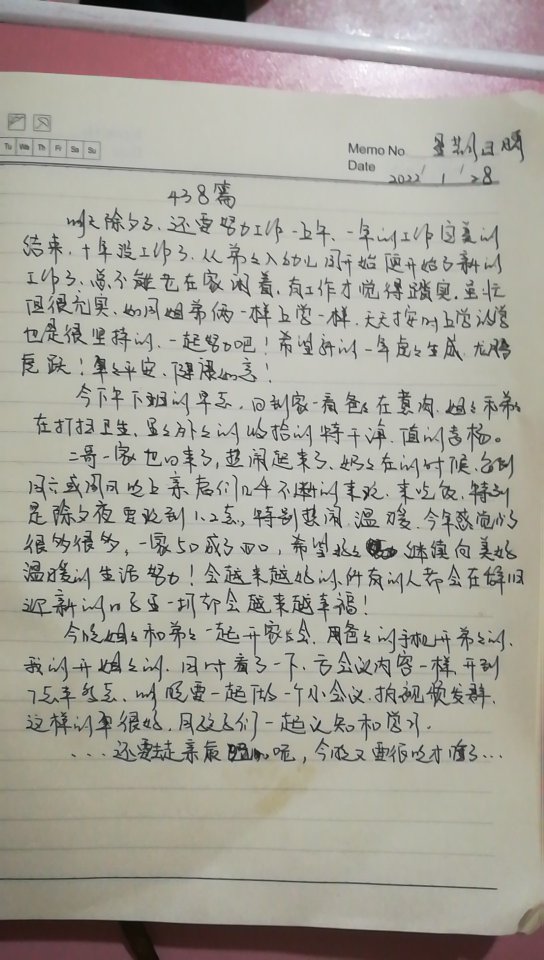 Tu We Th Fr Sa Su
Memo No. 星期五 晴
Date 2022 1 28
438篇
明天除夕了、还要努力工作一上午、一年的工作完美的
结束，十年没工作了、从弟弟入幼儿园开始便开始了新的
工作了、总不能老在家闲着，有工作才觉得踏实，虽忙
但很充实，如同姐弟俩一样上学一样，天天按时上学放学
也是很坚持的、一起努力吧！希望新的一年虎虎生威，龙腾
虎跃！年年平安，健康如意！
今下午下班的早点，回到家一看爸爸在煮肉，姐姐和弟弟
在打扫卫生，里里外外的收拾的特干净，值的表扬。
二哥一家也回来了，热闹起来了，妈妈在的时候，每到
周六或周日晚上亲君们几乎不断的来欢，来吃饭，特别
是除夕夜要欢到1.2点，特别热闹，温暖，今年感觉少了
很多很多，一家5口成了四口，希望 继续向美好
温暖的生活努力！会越来越好的，所有的人都会在辞旧
迎新的日子里一切都会越来越幸福！
今晚姐姐和弟弟一起开家长会，用爸爸的手机开弟弟的，
我的开姐姐的，同时看了一下，言会议内容一样，开到
7点半多点，明晚要一起做一个小会议，拍视频发群，
这样的事很好，同孩子们一起认知和学习.
....还要去走亲戚 呢，今晚又要很晚才睡了...